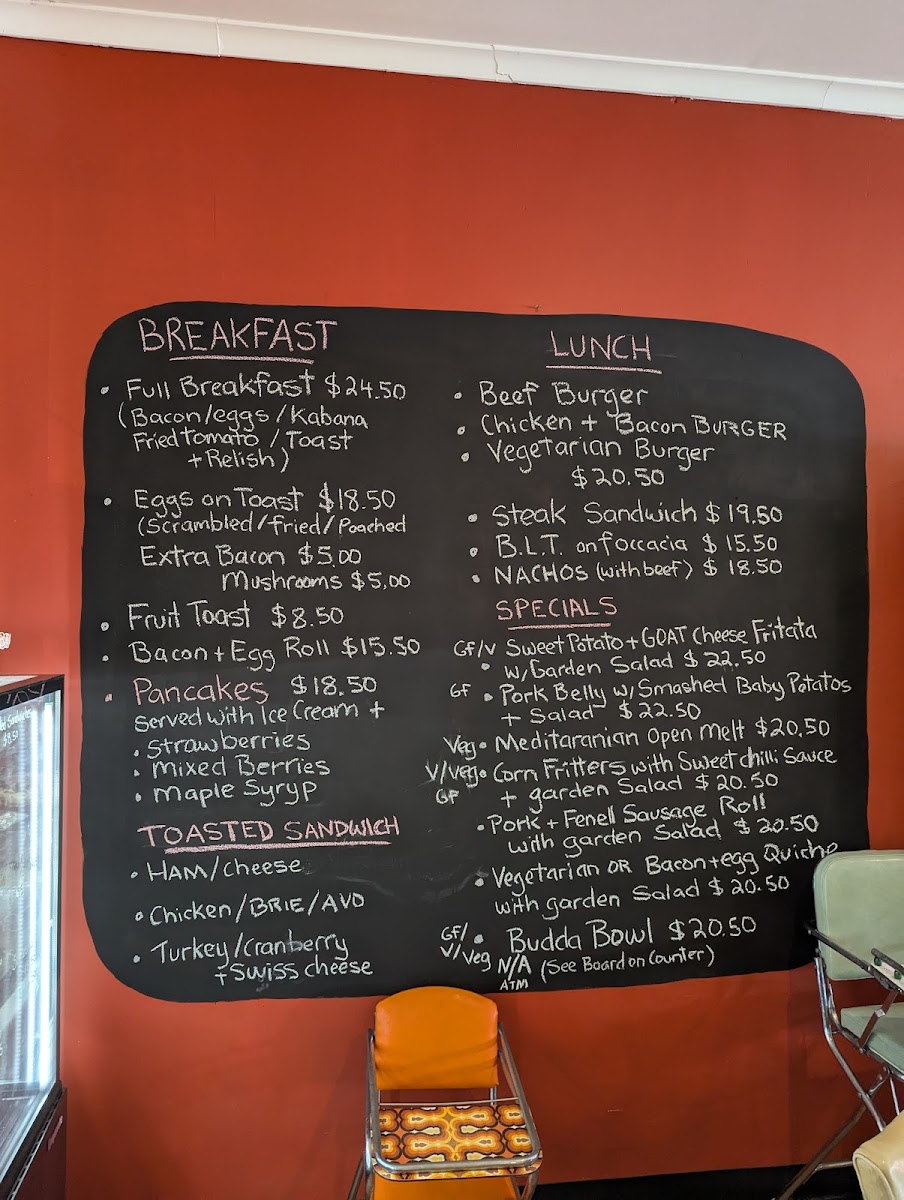 BREAKFAST
• Full Breakfast $24.50
(Bacon/eggs/Kabana
Fried Tomato / Toast
+ Relish)
• Eggs on Toast $18.50
(Scrambled/fried/Poached
Extra Bacon $5.00
Mushrooms $5.00
• Fruit Toast $8.50
• Bacon + Egg Roll $15.50
• Pancakes $18.50
Served with Ice Cream +
• Strawberries
• Mixed Berries
• Maple Syryp
TOASTED SANDWICH
• HAM/Cheese
• Chicken/BRIE/AVO
• Turkey/Cranberry
+ Swiss cheese
LUNCH
• Beef Burger
• Chicken + Bacon BURGER
• Vegetarian Burger
$20.50
• Steak Sandwich $19.50
• B.L.T. on foccacia $15.50
• NACHOS (with beef) $18.50
SPECIALS
GF/V Sweet Potato + GOAT Cheese Fritata
• w/Garden Salad $22.50
GF • Pork Belly w/Smashed Baby Potatos
+ Salad $22.50
Veg • Meditaranian Open Melt $20.50
V/Veg • Corn Fritters with Sweet chilli Sauce
GF + garden Salad $20.50
• Pork + Fenell Sausage Roll
with garden Salad $20.50
• Vegetarian OR Bacon+egg Quiche
with garden Salad $20.50
GF/ • Budda Bowl $20.50
V/Veg N/A (See Board on Counter)
ATM